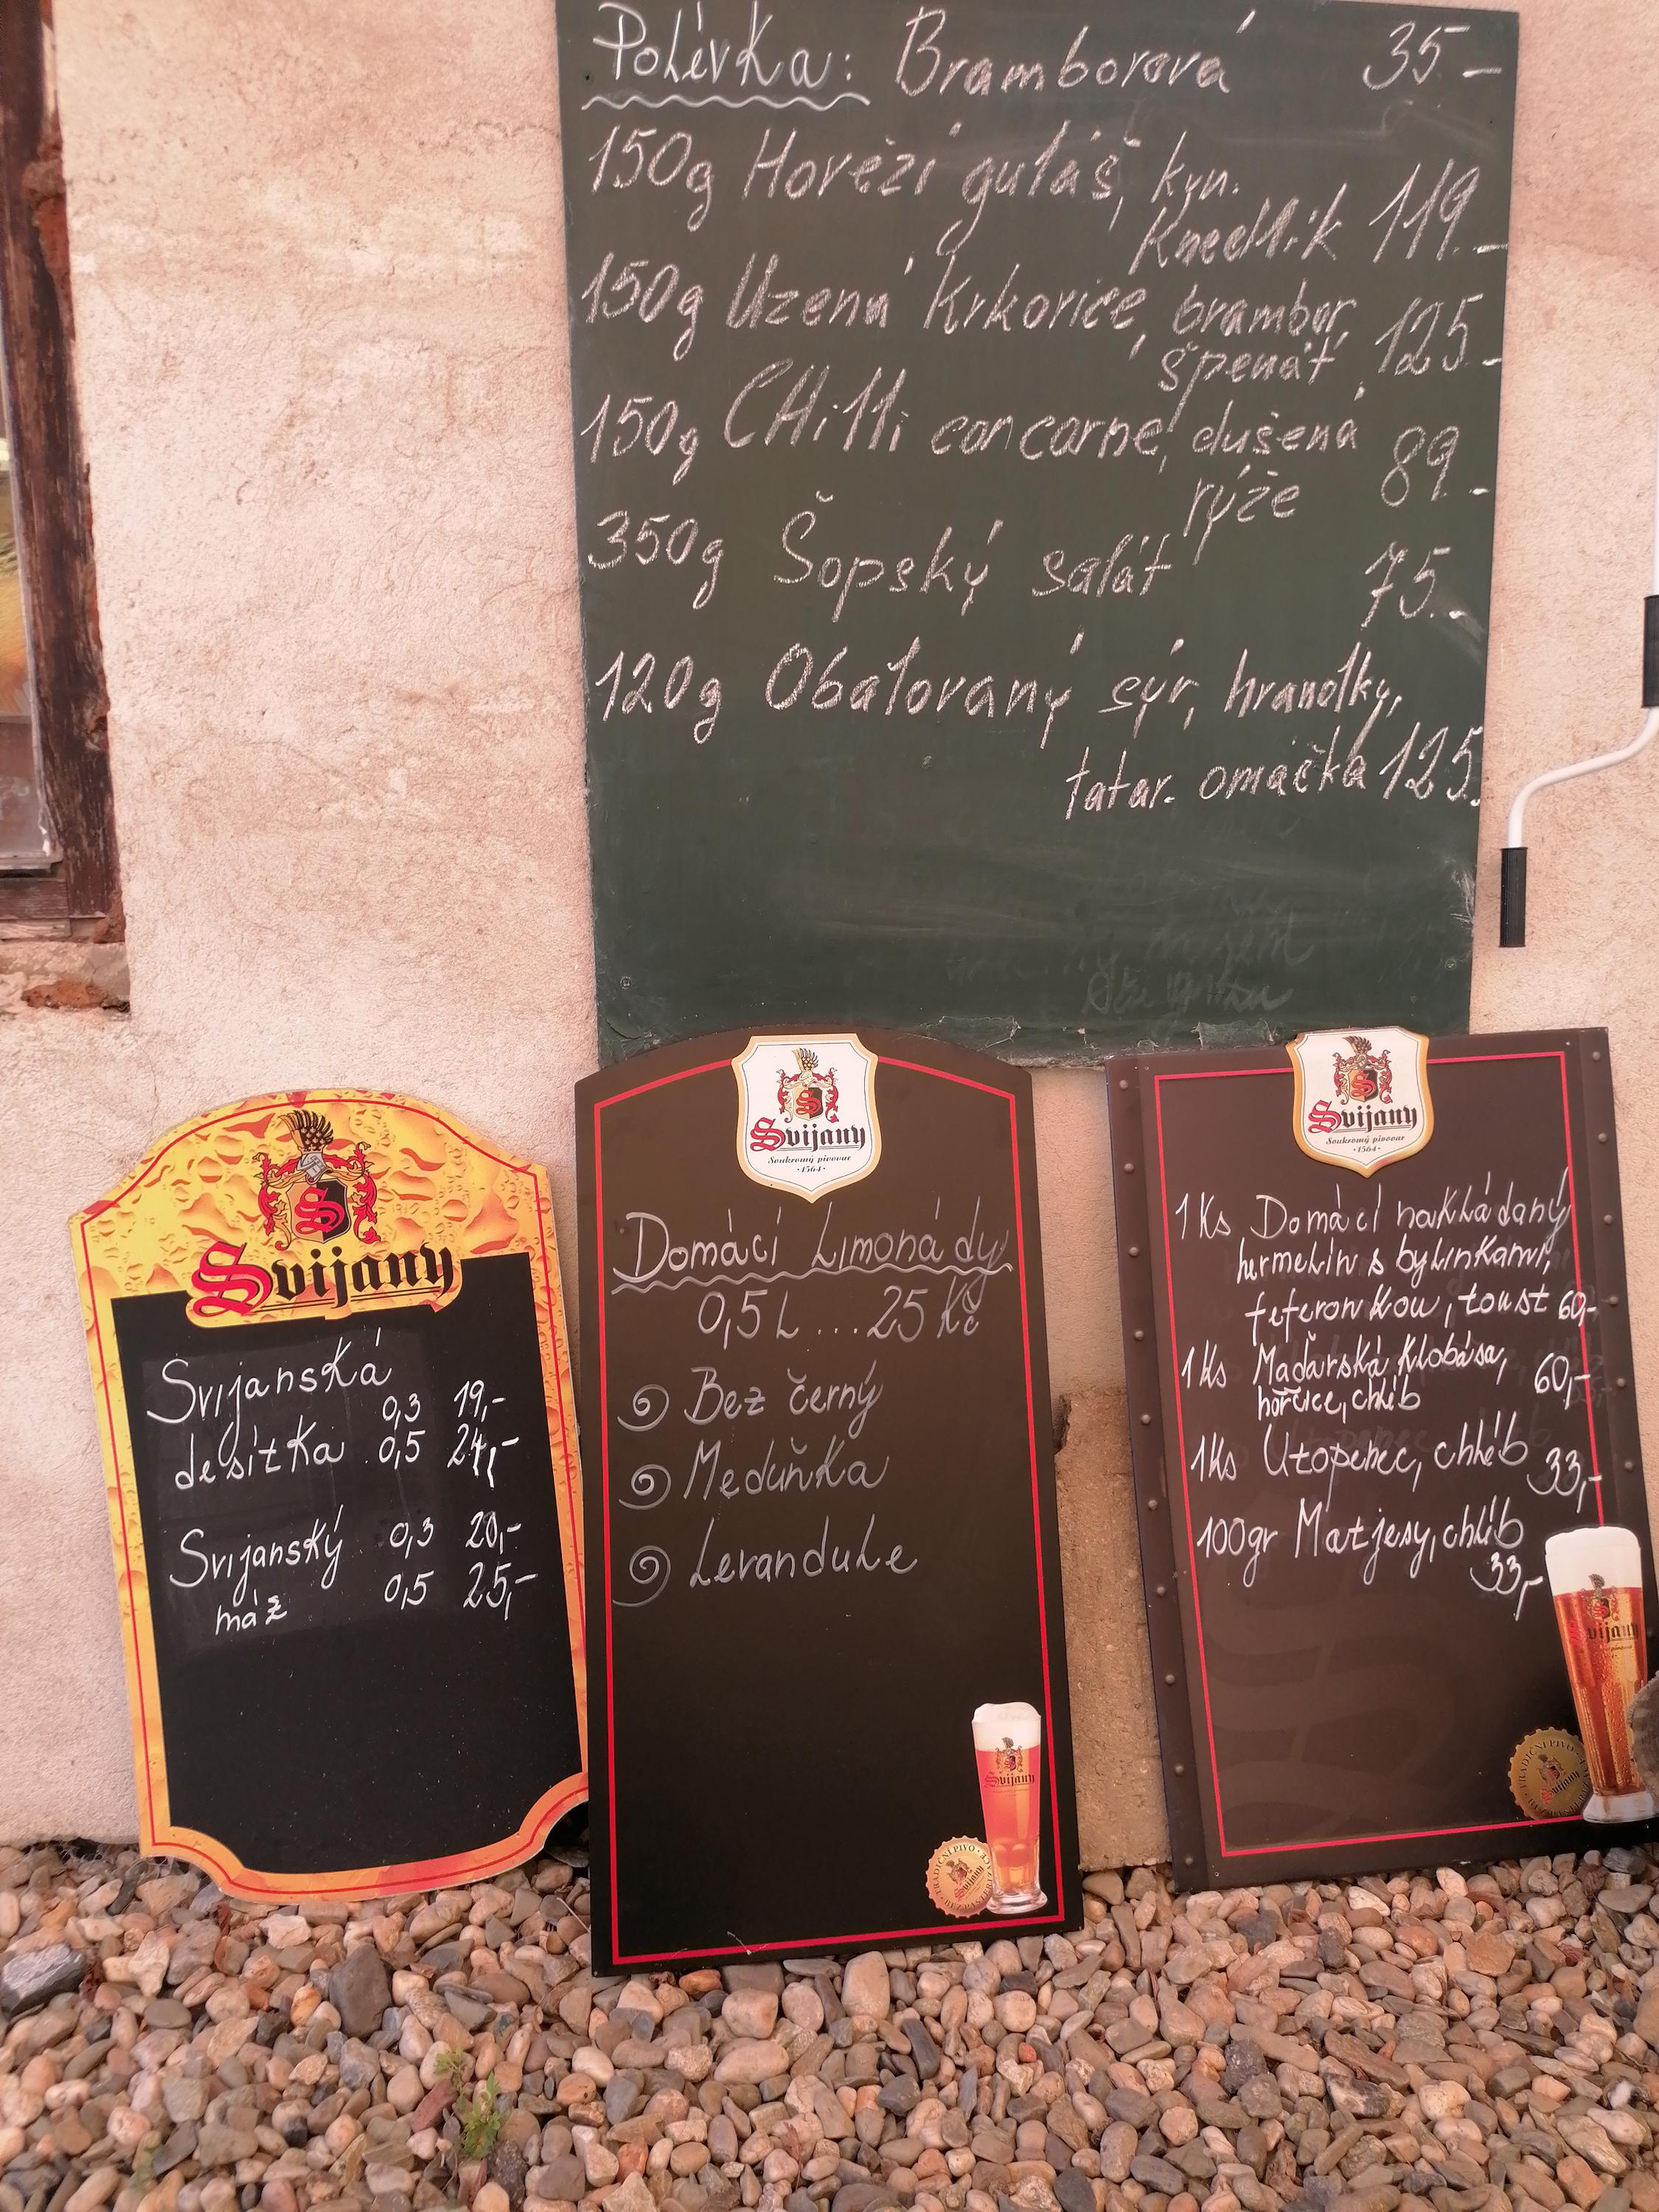 Polévka: Bramborová 35-
150g Hovězí guláš, kyn.
knedlík 119.-
150g Uzená krkovice, brambor,
špenát 125.-
150g CHilli concarne, dušená
rýže 89.-
350g Šopský salát 75.-
120g Obalovaný sýr, hranolky,
tatar. omáčka 125.
Svijany
Svijanská
0,3 19,-
desítka 0,5 24,-
Svijanský 0,3 20,-
máz 0,5 25,-
Svijany
Soukromý pivovar
·1564·
Domácí Limonády
0,5L ... 25 Kč
Bez černý
Meduňka
Levandule
Svijany
TRADIČNÍ PIVO
Svijany
Svijany
Soukromý pivovar
·1564·
1Ks Domácí nakládaný
hermelín s bylinkami,
feferonkou, toust 60,-
1Ks Maďarská klobása, 60,-
hořčice, chléb
1Ks Utopenec, chléb 33,-
100gr Matjesy, chléb
33,-
Svijany
TRADIČNÍ PIVO
Svijany